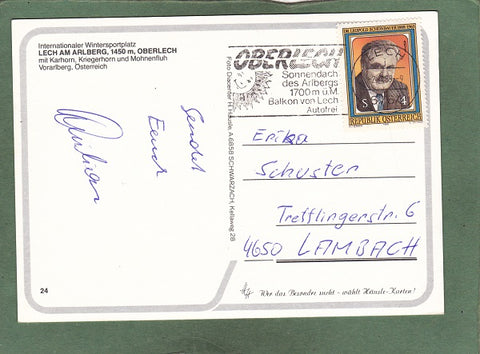 Internationaler Wintersportplatz
LECH AM ARLBERG, 1450 m, OBERLECH
mit Karhorn, Kriegerhorn und Mohnenfluh
Vorarlberg, Österreich
Sendet
Euch
24
Foto Diacenter H. Heinzle, A-6858 SCHWARZACH, Kellaweg 28
OBERLECH
Sonnendach
des Arlbergs
1700 m ü.M.
Balkon von Lech
Autofrei
LECH
S 4
REPUBLIK ÖSTERREICH
Erika
Schuster
Trefflingerstr. 6
4650 LAMBACH
Wer das Besondre sucht - wählt Heinzle-Karten!